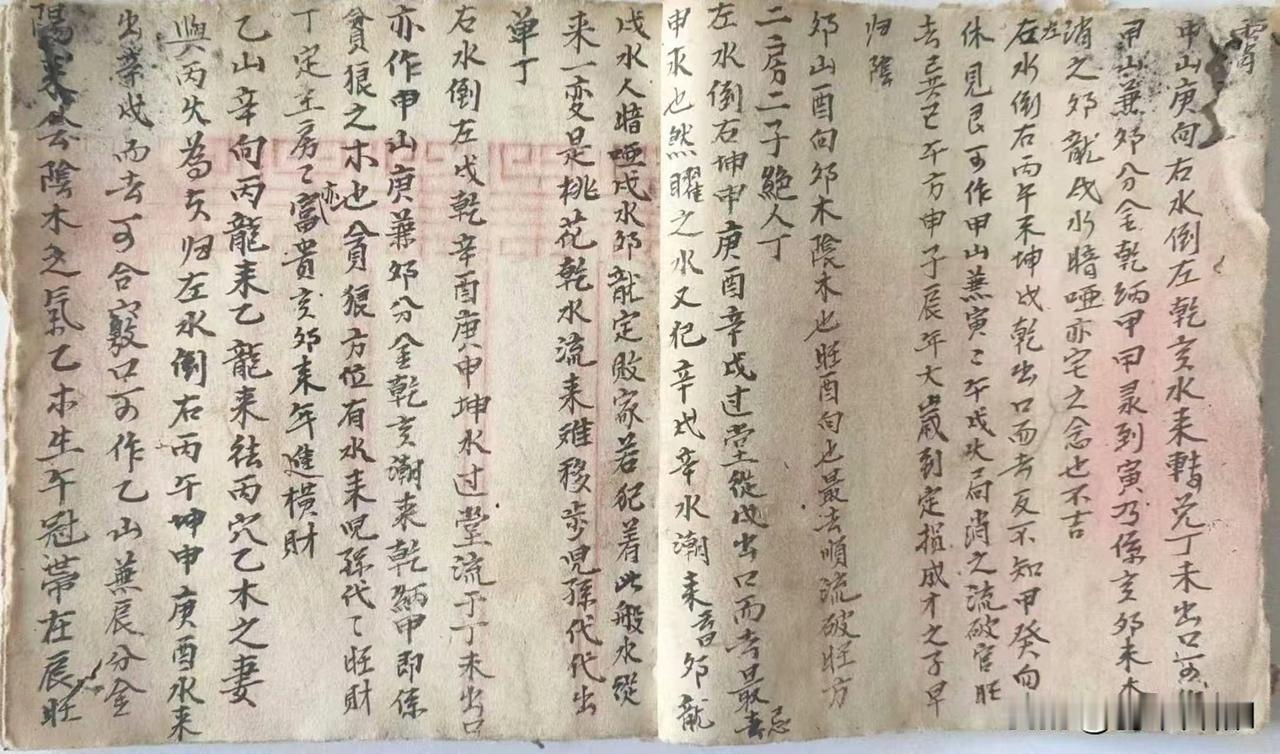 霄
申山庚向右水倒左乾亥水来轉兑丁未出口可
甲山兼卯分金乾纳甲曰录到寅乃係亥卯未木
消之卯龍戌水暗啞亦宅之念也不吉
右水倒左丙午未坤戌乾出口而去反不知甲癸向
休見艮可作甲山兼寅寅午戌火局消之流破官旺
去己巽巳午方申子辰年大歲到定損成才之子早
归陰
卯山酉向卯木陰木也旺酉向也最去順流破旺方
二房二子絕人丁
左水倒右坤申庚酉辛戌过堂從戌出口而去最忌
申水也然曜之水又犯辛戌辛水潮来音卯龍
戌水人暗啞戌水卯龍定敗家若犯着此般水從
来一变是桃花乾水流来难移步児孫代代出
单丁
右水倒左戌乾辛酉庚申坤水过堂流于丁未出口
亦作甲山庚兼卯分金乾亥潮来乾納甲即係
貪狼之木也貪狼方位有水来児孫代代旺財
丁定主房房亦富貴亥卯未年進横財
乙山辛向丙龍来乙龍来结丙穴乙木之妻
與丙火為夫归左水倒右丙午坤申庚酉水来
出辛戌而去可合竅口可作乙山兼辰分金
陽来云陰木之氣乙木生午冠帶在辰旺